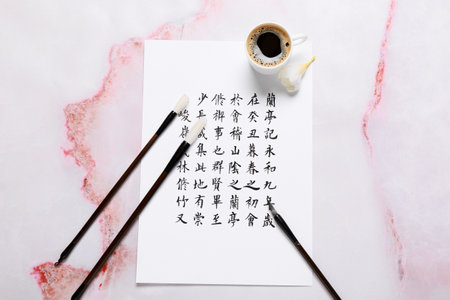 蘭亭記永和九年歲
在癸丑暮春之初會
於會稽山陰之蘭亭
脩稧事也群賢畢至
少長咸集此地有崇
峻嶺茂林脩竹又